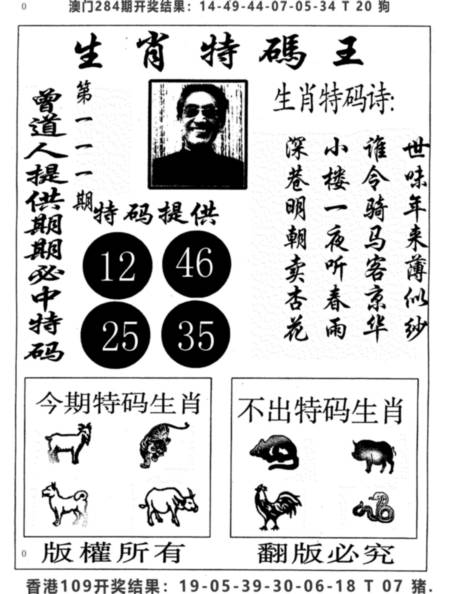 0
澳门284期开奖结果：14-49-44-07-05-34 T 20 狗
生肖特碼王
曾道人提供期期必中特码
第一一一期
特码提供
12
46
25
35
生肖特码诗:
世味年来薄似纱
谁令骑马客京华
小楼一夜听春雨
深巷明朝卖杏花
今期特码生肖
不出特码生肖
0
版權所有
翻版必究
香港109开奖结果：19-05-39-30-06-18 T 07 猪.